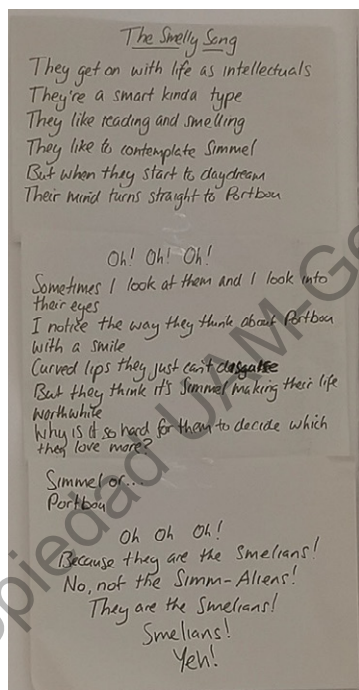 The Smelly Song
They get on with life as intellectuals
They're a smart kinda type
They like reading and smelling
They like to contemplate Simmel
But when they start to daydream
Their mind turns straight to Portbou
Oh! Oh! Oh!
Sometimes I look at them and I look into
their eyes
I notice the way they think about Portbou
with a smile
Curved lips they just can't disguise
But they think it's Simmel making their life
worthwhile
Why is it so hard for them to decide which
they love more?
Simmel or...
Portbou
Oh Oh Oh!
Because they are the Smelians!
No, not the Simm-Aliens!
They are the Smelians!
Smelians!
Yeh!
opiedad UAM-Ge